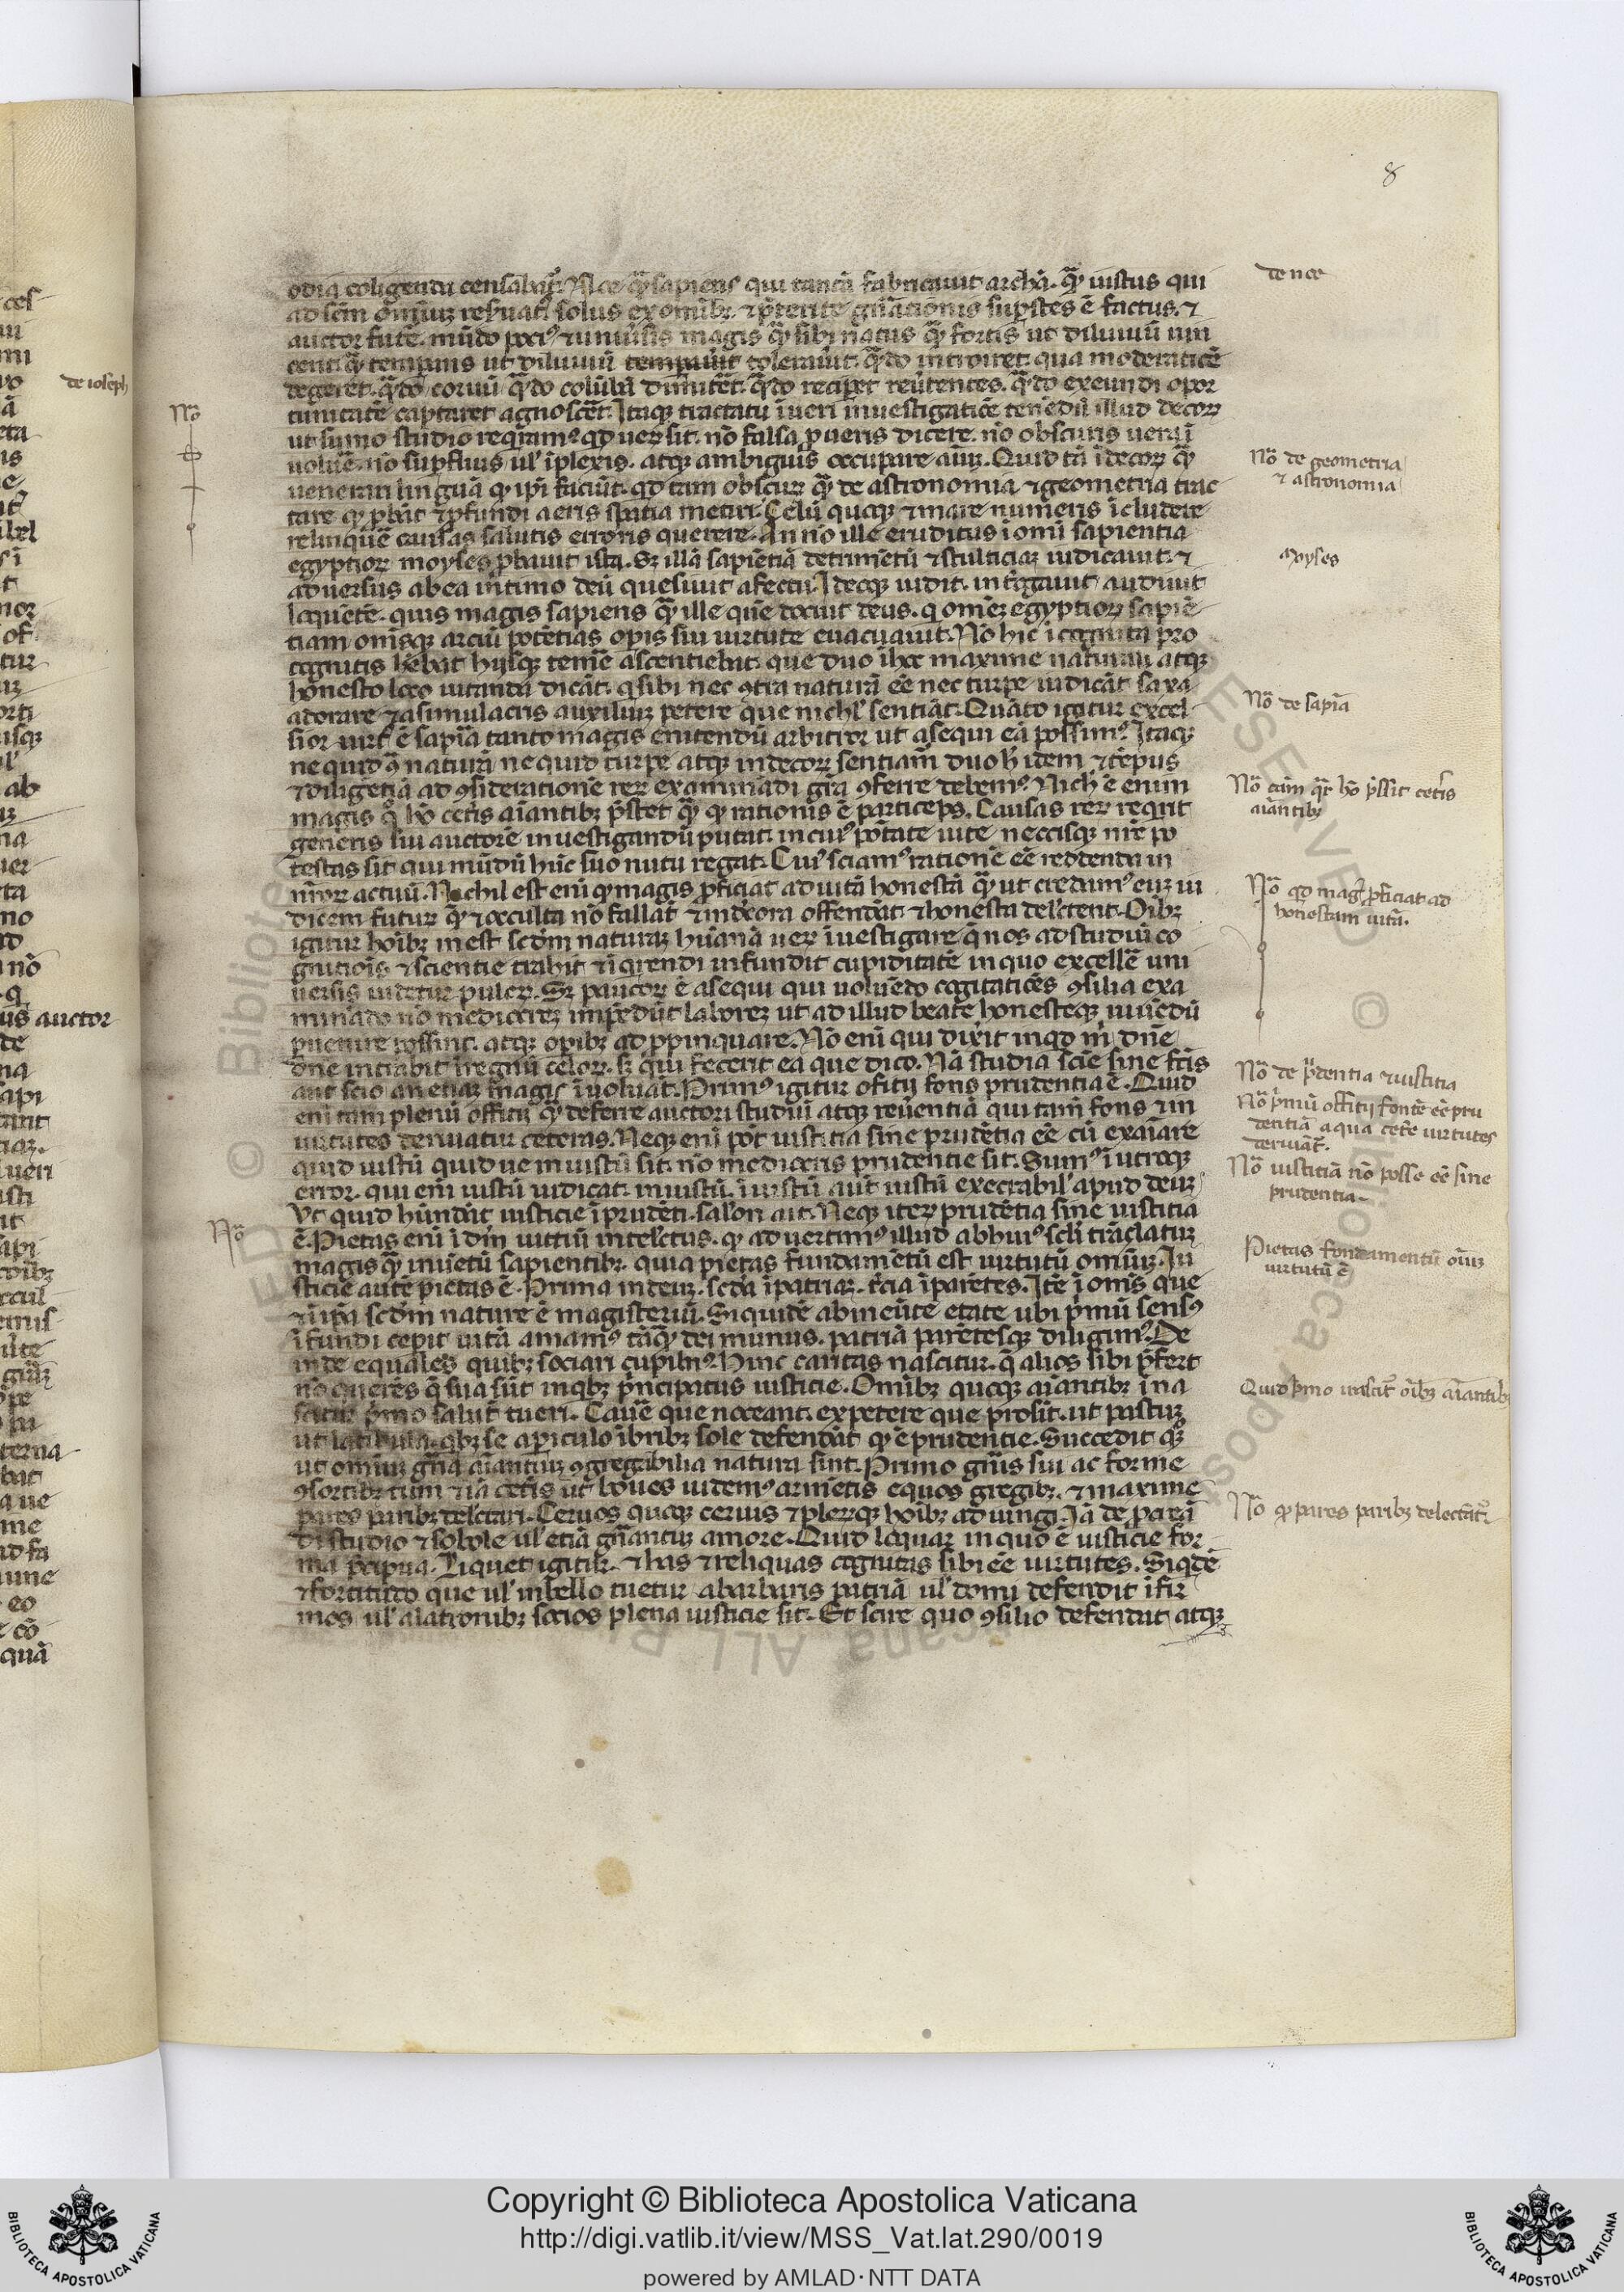 8
odia coligendu censabat᷑. Noe q̄ sapiens qui tantā fabricauit archā. q̄ iustus qui
ad sem̄ om̄iuꝫ resuat᷑. solus ex omībꝫ ⁊ p̄terite gn̄ationis sup̄stes ē factus. ⁊
auctor future. mūdo pocꝰ ⁊ uniūsis magis q̄ sibi natus q̄ fortis ut diluuiū uin
ceret. q̄ tempans ut diluuiū tempauit tolerauit. q̄do introiret. qua moderatiōe
degeret. q̄do coruū q̄do colūbā dimitēt. q̄do recipet reūtentes. q̄do exeundi opor
tunitatē captaret agnoscēt. Itaqꝫ tractatu īueri inuestigatiōe tenēdū illud decoꝝ
ut sūmo studio requiramꝰ qd ueꝝ sit. nō falsa p ueris dicere. nō obscuris uera ī
uoluē. nō supfluis ul' īplexis. atqꝫ ambiguis occupare aīuꝫ. Quid tā īdecoꝝ q̄
uenerari linguā qꝫ ip̄i faciūt. qd tam obscuꝝ q̄ de astronomia ⁊ geometria trac
tare qꝫ pbāt ⁊ pfundi aeris spatia metiri. Celū quoqꝫ ⁊ mare numeris īcludere
relinquē causas salutis erroris querere. An nō ille eruditus ī omī sapientia
egyptioꝝ moyses pbauit ista. Sꝫ illā sapiētiā detrimētū ⁊ stulticiaꝫ iudicauit. ⁊
aduersus ab ea intimo deū quesiuit afectu. Ideoqꝫ uidit. introgauit audiuit
loquētē. quis magis sapiens q̄ ille quē docuit deus. q om̄eꝫ egyptioꝝ sapiē
tiam om̄isqꝫ arciū potētias opis sui uirtute euacuauit. Nō hic īcognita pro
cognitis hēbat hijsqꝫ temē ascentiebat. que duo ī hoc maxime naturali atqꝫ
honesto loco uitanda dicāt. q sibi nec ꝯtra naturā eē nec turpe iudicāt saxa
adorare ⁊ a simulacris auxiliuꝫ petere que nichl' sentiāt. Quāto igitur excel
sior uirt᷑ ē sapīa tanto magis enitendū arbitror ut asequi eā possimꝰ. Itaqꝫ
ne quid ꝯ naturā ne quid turpe atqꝫ indecoꝝ sentiam duo h̄ idem ⁊ tēpus
⁊ diligētiā ad ꝯsiderationē reꝝ examinādi grā ꝯferre debemꝰ. Nich' ē enim
magis qo hō cetis aīantibꝫ p̄stet q̄ qꝫ rationis ē particeps. Causas reꝝ reqrit
generis sui auctorē inuestigandū putat. in cuiꝰ ptāte uite necisqꝫ nr̄e po
testas sit qui mūdū hūc suo nutu regat. Cui' sciamꝰ rationē eē reddenda in
nr̄oꝝ actuū. Nichil est enī qꝫ magis pficiat ad uitā honestā q̄ ut credamꝰ euꝫ iu
dicem futuꝝ quē ⁊ occulta nō fallāt ⁊ indecora offendāt ⁊ honesta delectent. Oībꝫ
igitur hoībꝫ inest scd̄m naturaꝫ humanā ueꝝ īuestigare q̄ nos ad studiū co
gnitiōis ⁊ scientie trahit ⁊ īqrendi infundit cupiditatē in quo excellē uni
uersis uidetur pulcꝝ. Sꝫ paucoꝝ ē asequi qui uoluēdo cogitatiōes ꝯsilia exa
minādo nō mediocreꝫ impēdūt laboreꝫ ut ad illud beate honesteqꝫ uiuēdū
puenire possint. atqꝫ opibꝫ adppinquare. Nō enī qui dixit inqd m̄ dn̄e
dn̄e intrabit ī regnū celoꝝ. sꝫ qui fecerit ea que dico. Nā studia sciē sine fc̄is
aut scio an etiaꝫ magis īuoluāt. Primꝰ igitur ofitij fons prudentia ē. Quid
enī tam plenū offitij q̄ deferre auctori studiū atqꝫ reuentiā qui tam̄ fons ⁊ in
uirtutes deriuatur ceteras. Neqꝫ enī pōt iustitia sine prudētia eē cū exaīare
quid iustū quid ue iniustū sit. nō mediocris prudentie sit. Sūmꝰ ī utroqꝫ
error. qui enī iustū iudicat. iniustū. īiustū aūt iustū execrabil' apud deuꝫ
Vt quid hūndāt iusticie īprudēti. salon ait. Neqꝫ iteꝝ prudētia sine iustitia
ē. Pietas enī ī dm̄ initiū intelectus. qꝫ aduertimꝰ illud ab huiꝰ scli trāslatuꝫ
magis q̄ inuētū sapientibꝫ. quia pietas fundamētū est uirtutū omīuꝫ. Iu
sticie autē pietas ē. Prima in deuꝫ. scd̄a ī patriaꝫ. tcia ī parētes. Itē ī omīs que
⁊ ip̄a scd̄m nature ē magisteriū. Siquidē ab ineūte etate ubi p̄mū sensꝰ
īfundi cepit uitā amamꝰ tāqꝫ dei munus. patriā parētesqꝫ diligimꝰ. De
inde equales quibꝫ sociari cupimꝰ. Hinc caritas nascitur. q̄ alios sibi p̄fert
nō querēs q̄ sua sūt inqbꝫ p̄ncipatus iusticie. Omībꝫ quoqꝫ aīantibꝫ ina
scitur p̄mo salut᷑ tueri. Cauē que noceant. expetere que prosīt. ut pastuꝫ
ut latibula. qbꝫ se a piculo ībribꝫ sole defendāt qꝫ ē prudentie. Succedit qꝫ
ut omīuꝫ gn̄a aīantiuꝫ ꝯgregabilia natura sint. Primo gn̄is sui ac forme
ꝯsortibꝫ tum ⁊iā cetis ut boues uidemꝰ armētis equos gregibꝫ. ⁊ maxime
pares paribꝫ delectari. Ceruos quoqꝫ ceruis ⁊ pleruqꝫ hoībꝫ adiungi. Iā de parā
di studio ⁊ sobole ul' etiā gn̄antiuꝫ amore. Quid loquar in quo ē iusticie for
ma p̄cipua. Liquet igitur. ⁊ has ⁊ reliquas cognatas sibi eē uirtutes. Siqdē
⁊ fortitudo que ul' in bello tuetur a barbaris patriā ul' domi defendit īfir
mos ul' a latronibꝫ socios plena iusticie sit. Et scire quo ꝯsilio defendat atqꝫ
de noe
Nō
Nō de geometria
⁊ astronomia
Moyses
Nō de sapīa
Nō cām q̄r hō p̄stit cetis
aīantibꝫ
Nō qd magꝭ pficiat ad
honestam uitā.
Nō de prudentia ⁊ iustitia
Nō p̄mū offitij fontē eē pru
dentiā a qua cete uirtutes
deriuāt᷑.
Nō iustitiā nō posse eē sine
prudentia
Nō
Pietas fondamentū oīuꝫ
uirtutū ē
Quid p̄mo nascit᷑ oībꝫ aīantibꝫ
Nō qꝫ pares paribꝫ delectāt᷑
de ioseph
auctor
Copyright © Biblioteca Apostolica Vaticana
http://digi.vatlib.it/view/MSS_Vat.lat.290/0019
powered by AMLAD·NTT DATA
BIBLIOTECA APOSTOLICA VATICANA
BIBLIOTECA APOSTOLICA VATICANA